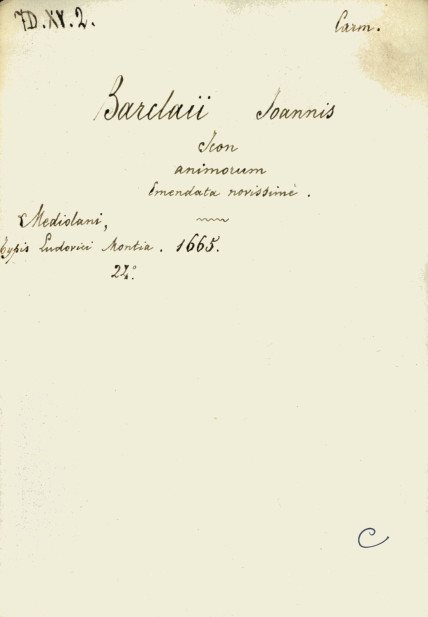 7D.XV.2.
Carm.
Barclaii Ioannis
Icon
animorum
Emendata novissimè.
Mediolani,
typis Ludovici Montia. 1665.
24.°
C